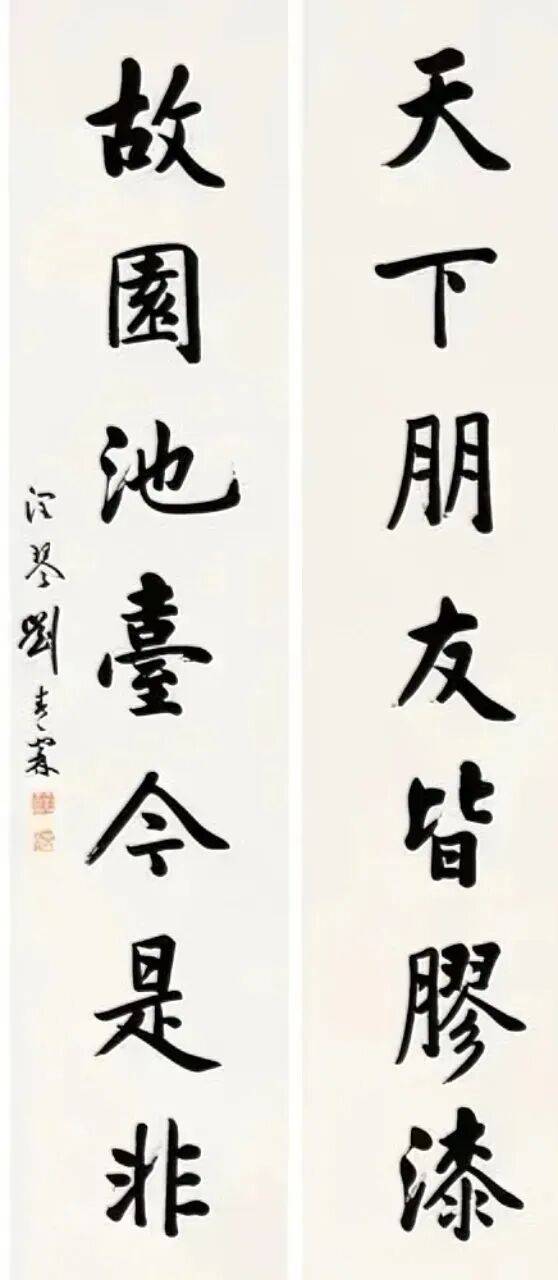 天下朋友皆膠漆
故園池臺今是非
潤琴劉春霖